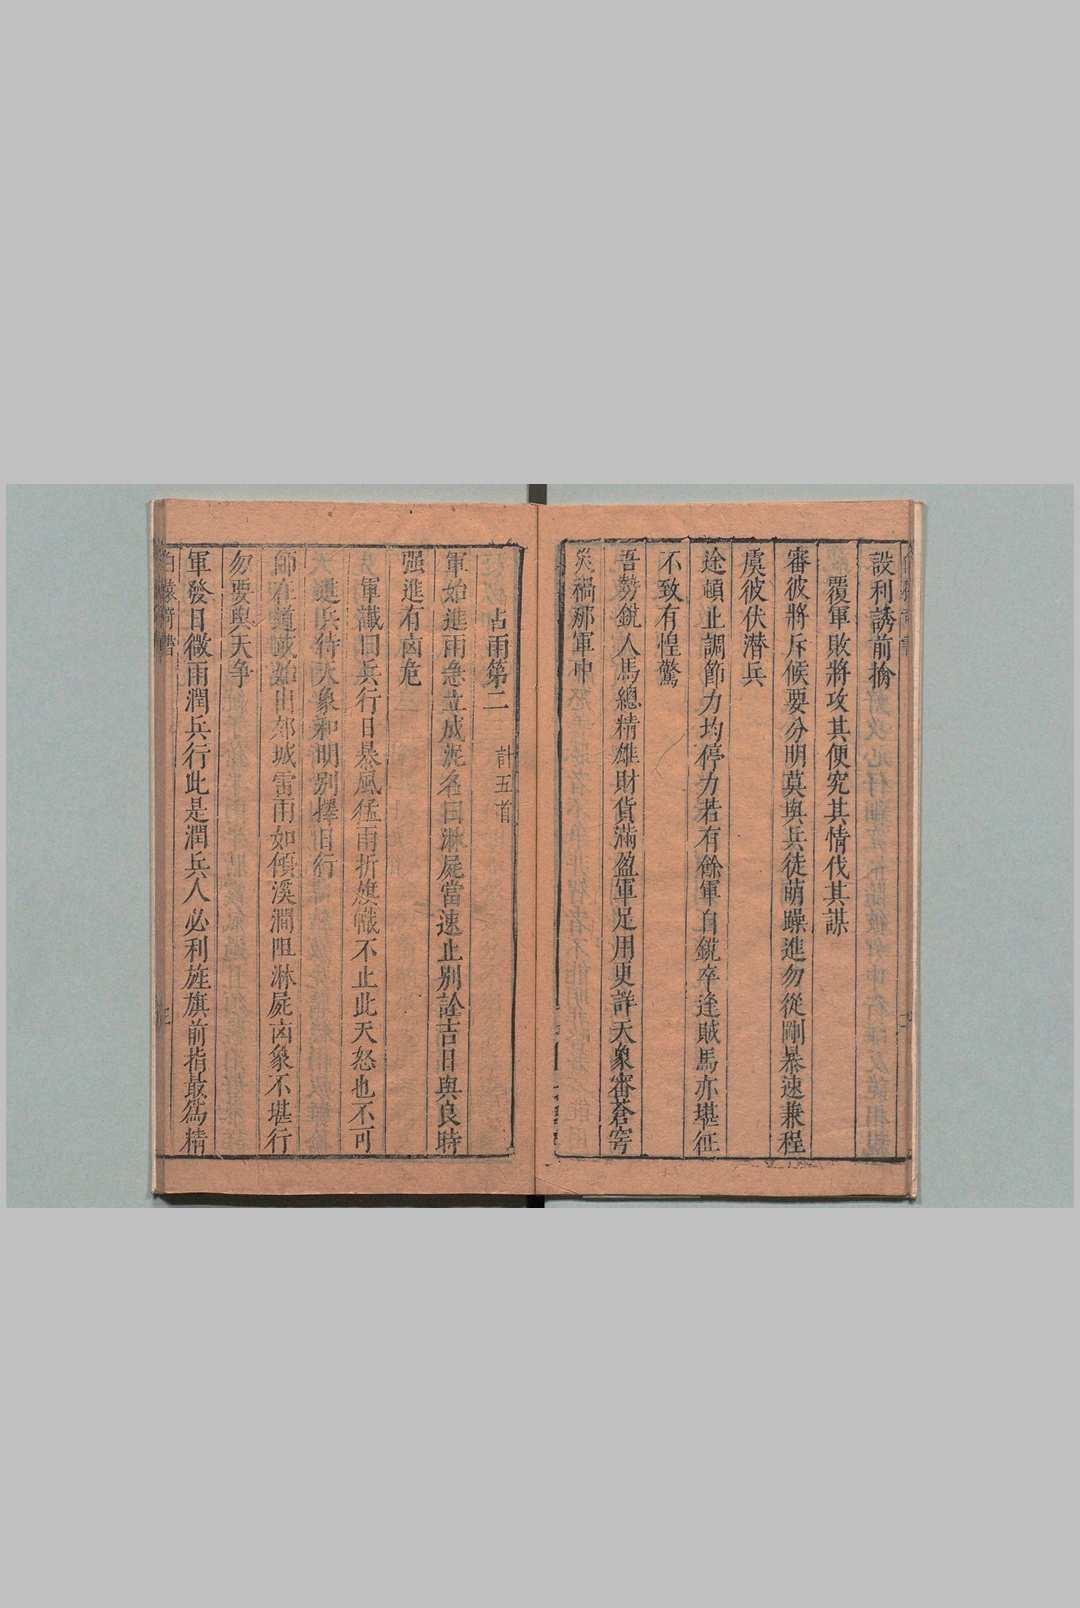 設利誘前擒
覆軍敗將攻其便究其情伐其謀
審彼將斥候要分明莫與兵徒萌躁進勿從剛暴速兼程
虞彼伏潛兵
途頓止調節力均停力若有餘軍自銳卒逢賊馬亦堪征
不致有惶驚
吾勢銳人馬總精雄財貨滿盈軍足用更詳天象審蒼穹
災禍那軍中
占雨第二 計五首
軍始進雨急立成泥名曰淋屍當速止別詮吉日與良時
强進有凶危
軍讖曰兵行日暴風猛雨折旗幟不止此天怒也不可
進兵待天象和明別擇日行
師在道或始出郊城雷雨如傾溪澗阻淋屍凶象不堪行
勿要與天爭
軍發日微雨潤兵行此是潤兵人必利旌旗前指最為精
白猿奇書